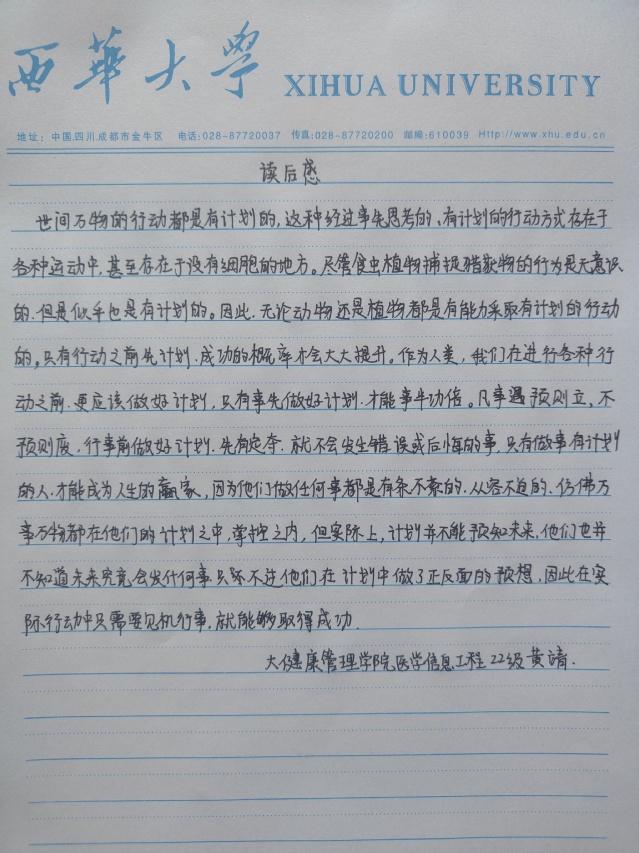 西華大學 XIHUA UNIVERSITY
地址：中国.四川.成都市金牛区 电话:028-87720037 传真:028-87720200 邮编:610039 Http://www.xhu.edu.cn
读后感
世间万物的行动都是有计划的，这种经过事先思考的、有计划的行动方式存在于
各种运动中，甚至存在于没有细胞的地方。尽管食虫植物捕捉猎获物的行为是无意识
的，但是似乎也是有计划的。因此，无论动物还是植物都是有能力采取有计划的行动
的。只有行动之前先计划，成功的概率才会大大提升。作为人类，我们在进行各种行
动之前，更应该做好计划，只有事先做好计划，才能事半功倍。凡事遇预则立，不
预则废，行事前做好计划，先有定夺，就不会发生错误或后悔的事，只有做事有计划
的人，才能成为人生的赢家，因为他们做任何事都是有条不紊的，从容不迫的，仿佛万
事万物都在他们的计划之中，掌控之内，但实际上，计划并不能预知未来，他们也并
不知道未来究竟会发什何事，只不过他们在计划中做了正反面的预想，因此在实
际行动中只需要见机行事，就能够取得成功.
大健康管理学院医学信息工程22级黄靖.